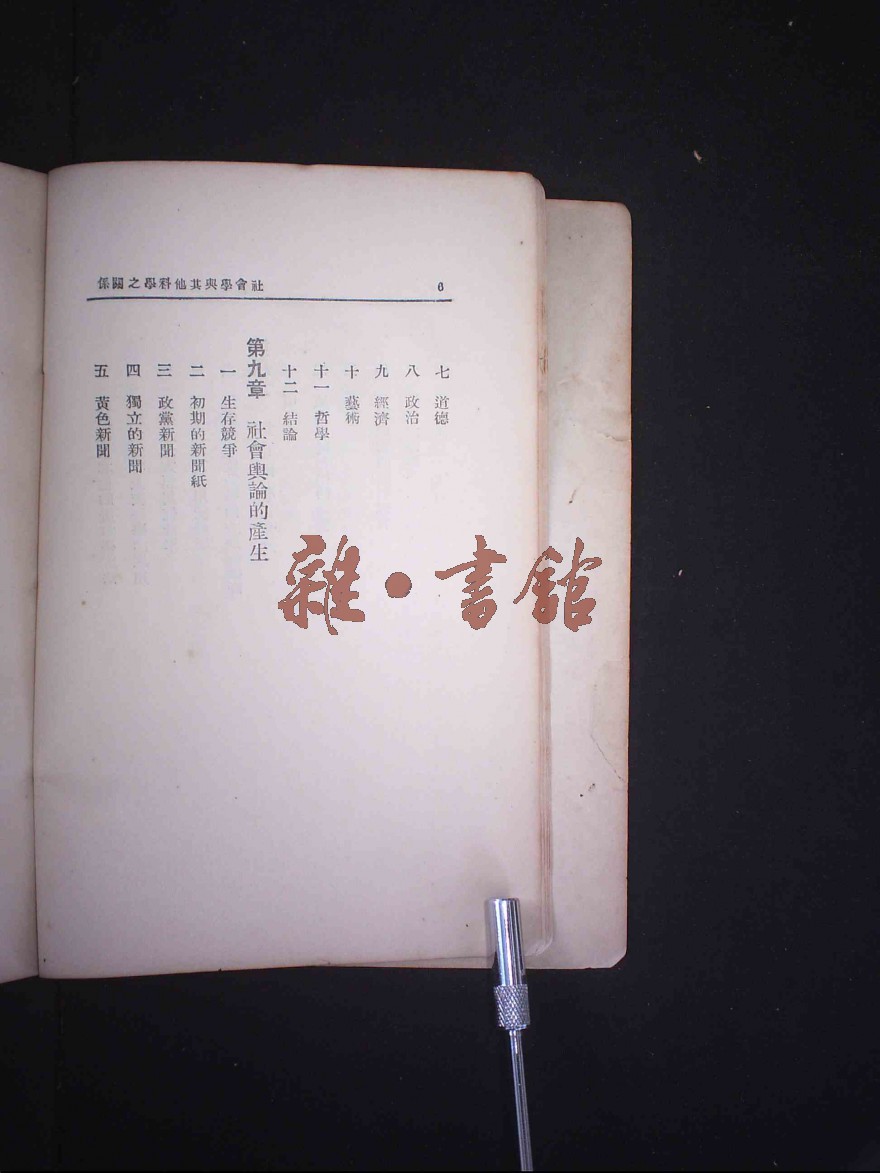 社會學與其他科學之關係
6
七 道德
八 政治
九 經濟
十 藝術
十一 哲學
十二 結論
第九章 社會輿論的產生
一 生存競爭
二 初期的新聞紙
三 政黨新聞
四 獨立的新聞
五 黃色新聞
雜·書館